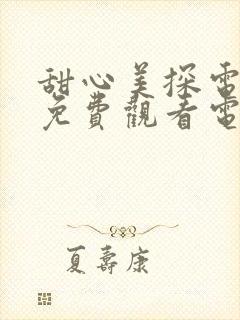 甜心美探電
免費觀看電
夏壽康